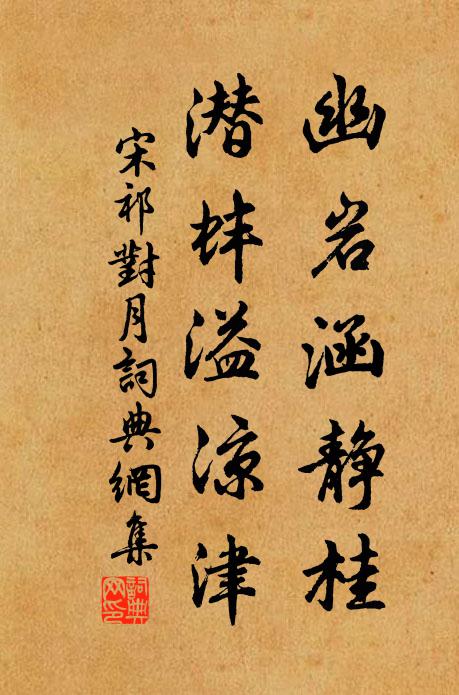 幽岩涵静桂
潜蚌溢凉津
宋祁對月詞典網集
詞典網印